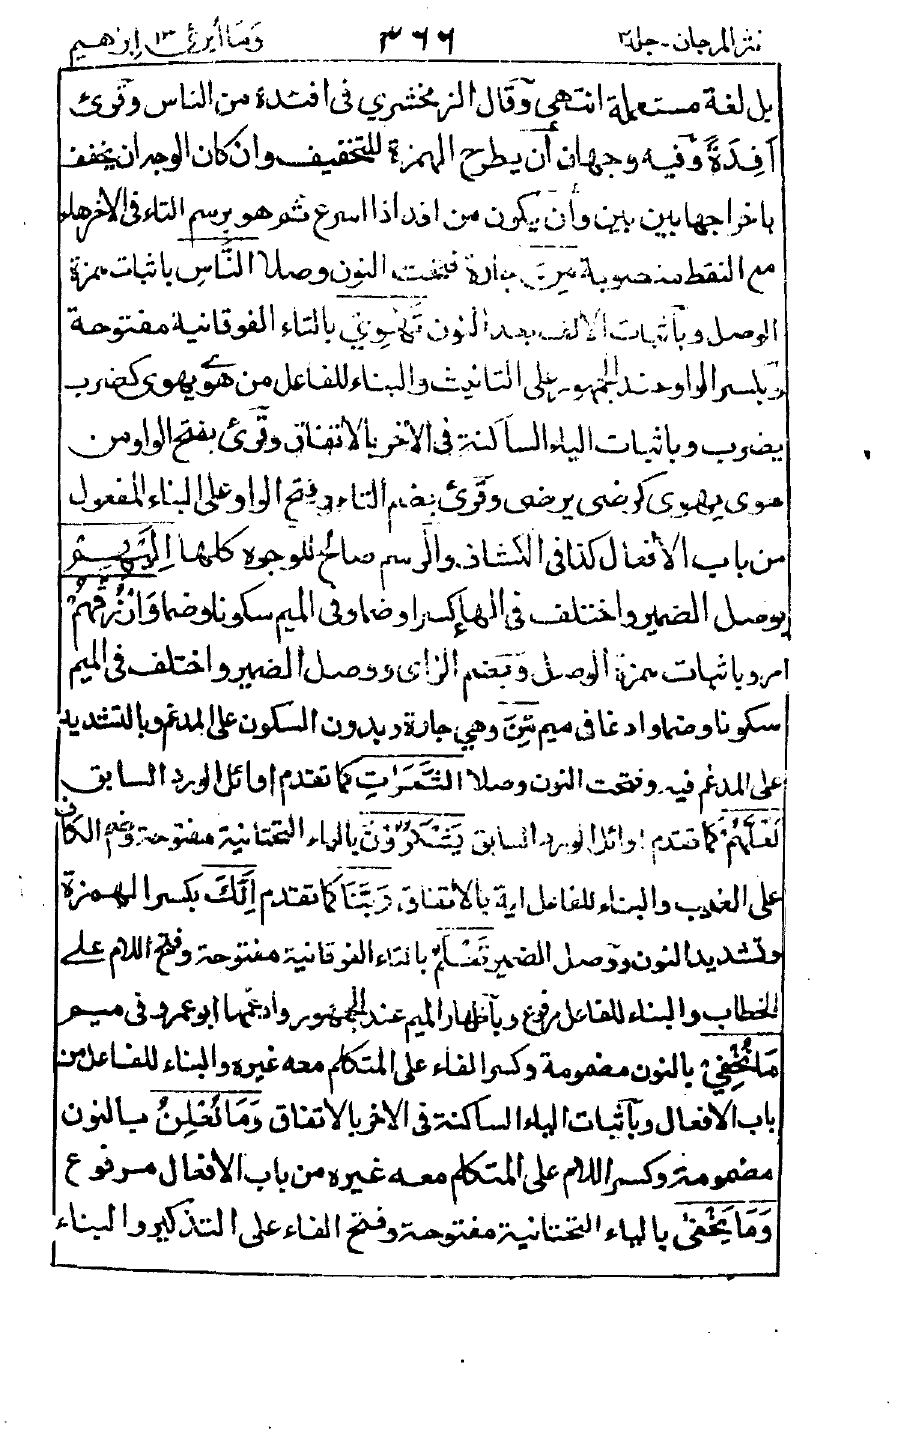 نثر المرجان - جلد ٣ ٣٦٦ وَمَا أُبَرِّئُ ١٣ إبرٰهيم
بل لغة مستعملة انتهى وقال الزمخشري فى افئدة من الناس وقرئ
آفِدَةً وفيه وجهان أن يطرح الهمزة للتخفيف وان كان الوجه ان يخفف
باخراجها بين بين وأن يكون من افد اذا اسرع ثم هو برسم التاء فى الآخر هاء
مع النقط منصوبة مِنَ جارة فتحت النون وصلا النَّاسِ باثبات همزة
الوصل وبآثبات الالف بعد النون تَهْوِيْ بالتاء الفوقانية مفتوحة
وبكسر الواو عند الجمهور على التانيث والبناء للفاعل من هوى يهوى كضرب
يضرب وباثبات الياء الساكنة فى الآخر بالاتفاق وقرئ بفتح الواو من
هوى يهوى كرضى يرضى وقرئ بضم التاء وفتح الواو على البناء المفعول
من باب الأفعال كذا فى الكشاف والرسم صالح للوجوه كلها اِلَيْهِمْ
بوصل الضمير واختلف فى الهاء كسرا وضما وفى الميم سكونا وضما وَارْزُقْهُمْ
امر وباثبات همزة الوصل وبضم الزاى ووصل الضمير واختلف فى الميم
سكونا وضما وادغما فى ميم مِّنَ وهي جارة وبدون السكون على المدغم وبالتشديد
على المدغم فيه وفتحت النون وصلا الثَّمَرَاتِ كما تقدم اوائل الورد السابق
لَعَلَّهُمْ كما تقدم اوائل الورد السابق يَشْكُرُوْنَ بالياء التحتانية مفتوحة وضم الكاف
على الغيب والبناء للفاعل اية بالاتفاق رَبَّنَا كما تقدم اِنَّكَ بكسر الهمزة
وتشديد النون ووصل الضمير تَعْلَمُ بالتاء الفوقانية مفتوحة وفتح اللام على
الخطاب والبناء للفاعل مرفوع وبآظهار الميم عند الجمهور وادغمها ابو عمرو فى ميم
مَا نُخْفِيْ بالنون مضمومة وكسر الفاء على المتكلم معه غيره والبناء للفاعل من
باب الافعال وبآثبات الياء الساكنة فى الاخر بالاتفاق وَمَا نُعْلِنُ بالنون
مضمومة وكسر اللام على المتكلم معه غيره من باب الافعال مرفوع
وَمَا يَخْفىٰ بالياء التحتانية مفتوحة وفتح الفاء على التذكير والبناء